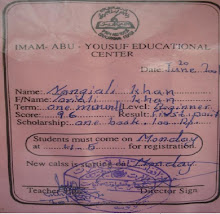 IMAM- ABU - YOUSUF EDUCATIONAL
CENTER
Date June
Name: Khan
F/Name: Khan
Term: one month Level: Beginner
Score: 96 Result: First point
Scholarship: one book, 100
Students must come on Monday
at 4:5 for registration.
New calss is started on Monday
Teacher Sign Director Sign